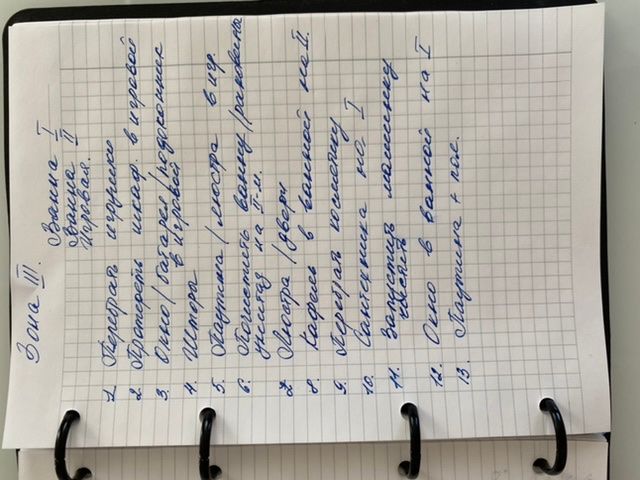 Зона III.
Ванна I
Ванна II
Игровая.
1. Перебрать игрушки
2. Протереть шкаф. в игровой
3. Окно/батарея/подоконник
в игровой
4. Шторы
5. Паутина/люстра в игр.
6. Почистить ванну/раковина
унитаз на II-м.
7. Люстра/двери
8. Кафель в ванной на II.
9. Перебрать косметику
10. Сантехника на I
11. Запустить машинку
чистить
12. Окно в ванной на I
13. Паутина + пол.